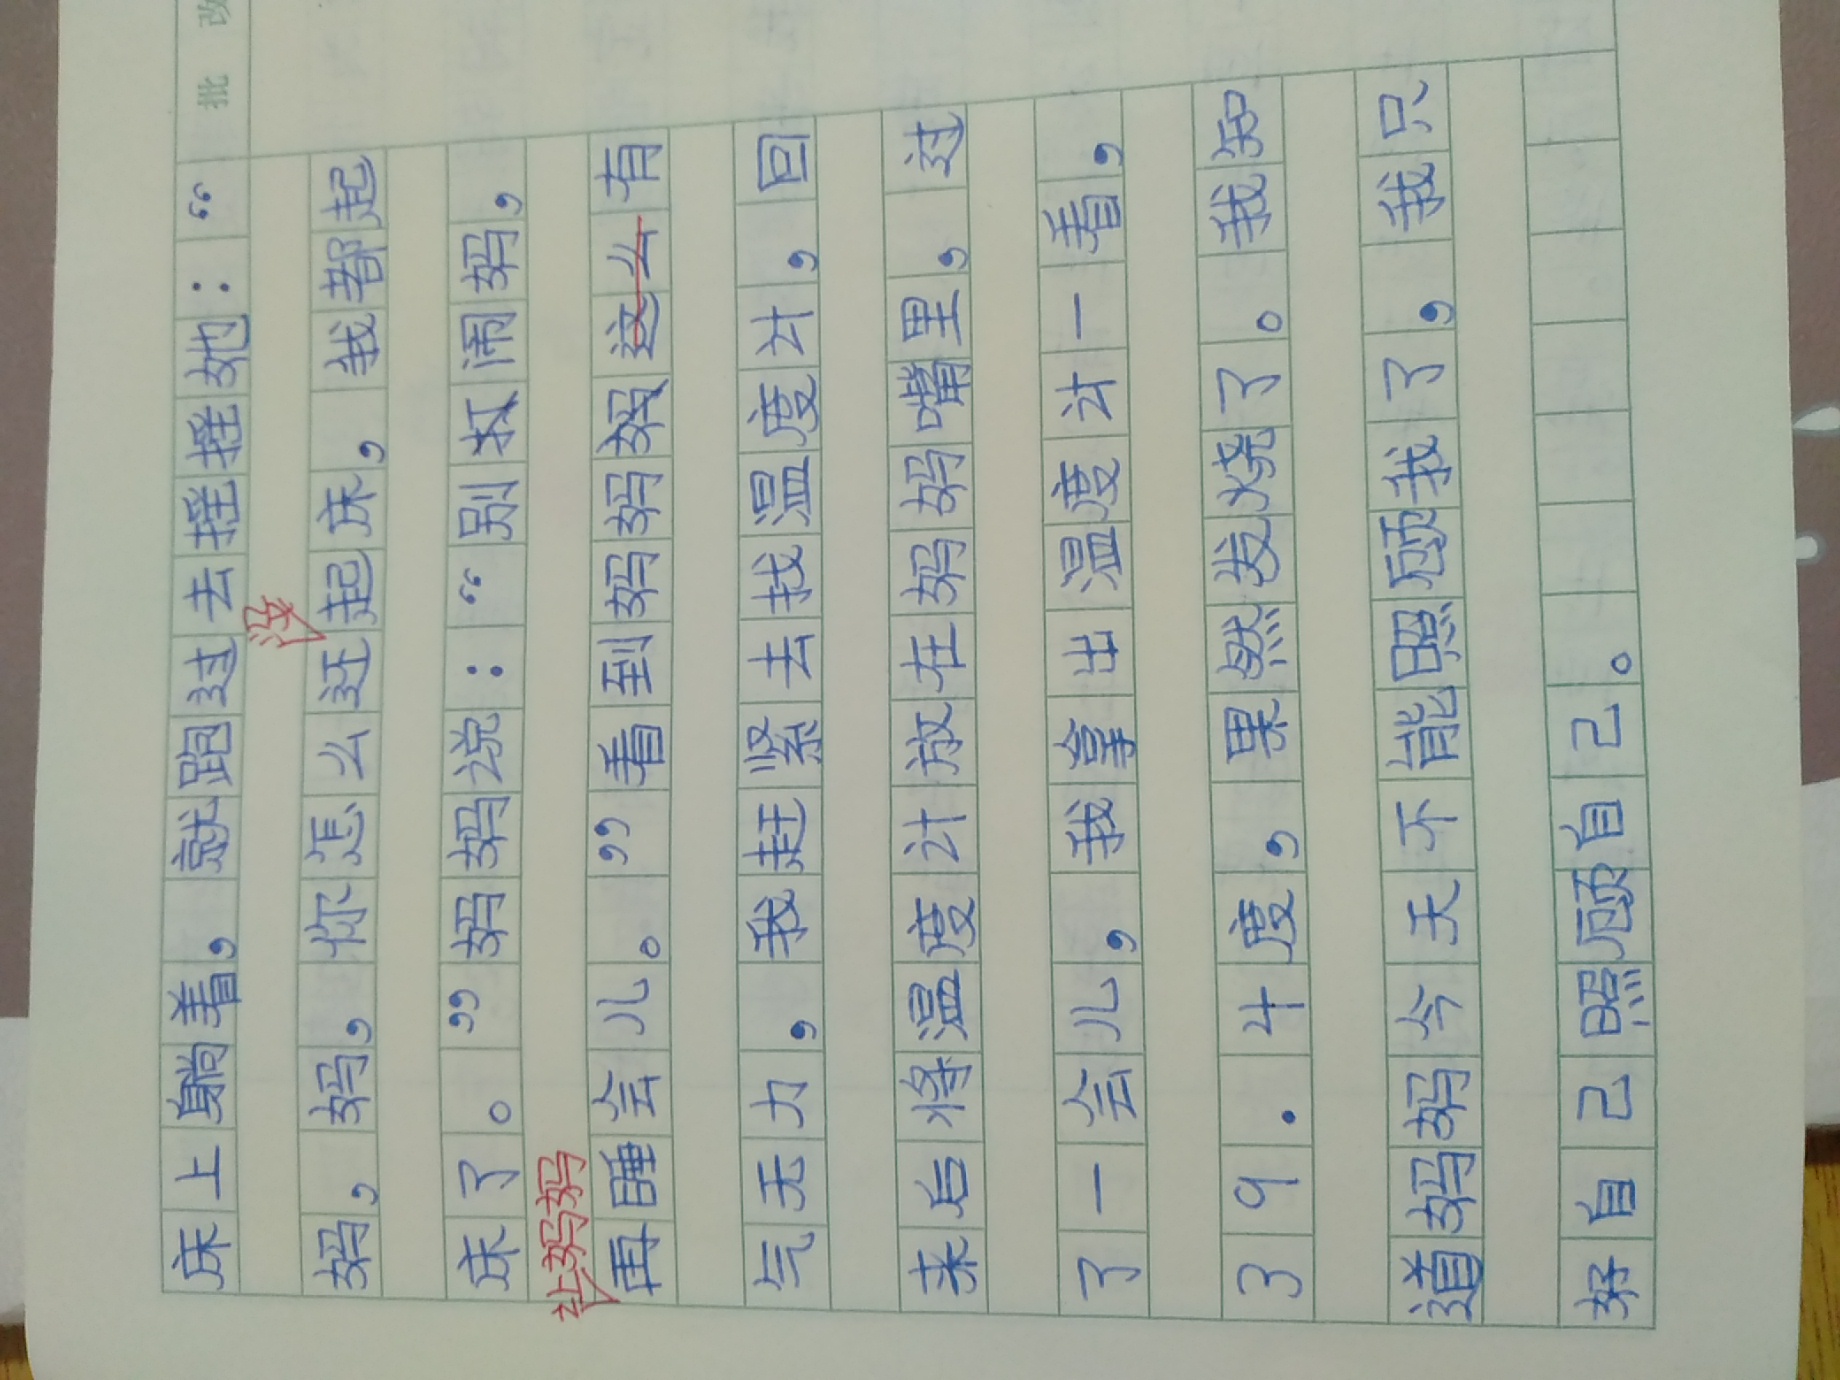 批 改
床上躺着，就跑过去摇摇她：“
没
妈，妈，你怎么还起床，我都起
床了。”妈妈说：“别打闹妈，
让妈妈
再睡会儿。”看到妈妈妈这么有
气无力，我赶紧去找温度计，回
来后将温度计放在妈妈嘴里，过
了一会儿，我拿出温度计一看，
39.4度，果然发烧了。我知
道妈妈今天不能照顾我了，我只
好自己照顾自己。